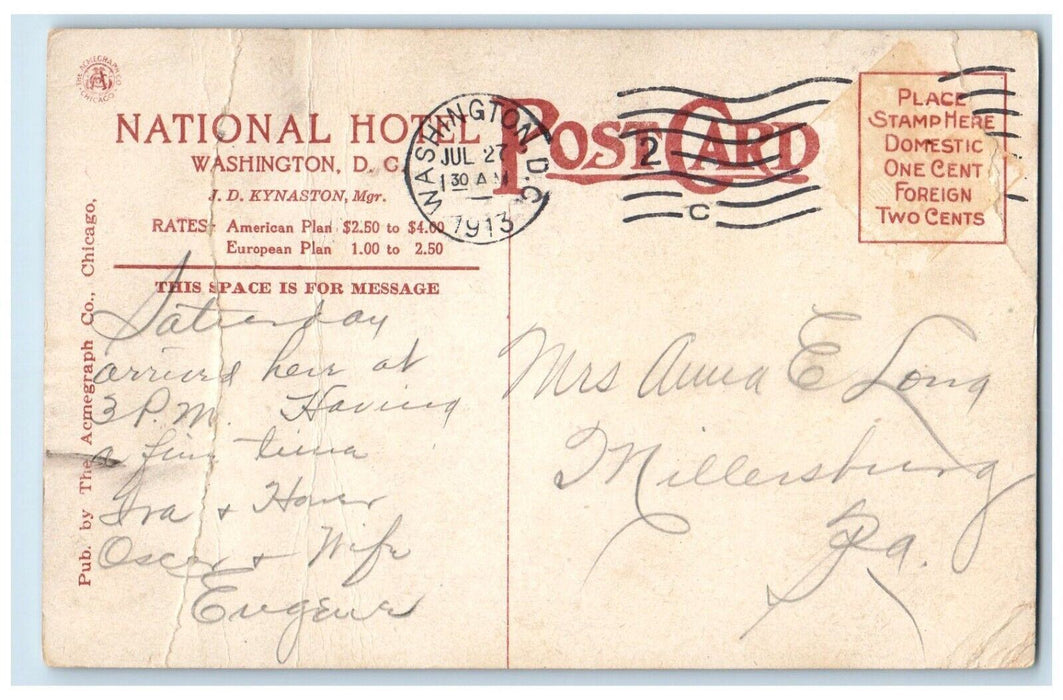 THE ACMEGRAPH CO.
CHICAGO
NATIONAL HOTEL
WASHINGTON, D. C.
J. D. KYNASTON, Mgr.
RATES: American Plan $2.50 to $4.00
European Plan 1.00 to 2.50
THIS SPACE IS FOR MESSAGE
POST CARD
WASHINGTON, D.C.
JUL 27
1 30 AM
1913
2
C
PLACE
STAMP HERE
DOMESTIC
ONE CENT
FOREIGN
TWO CENTS
Pub. by The Acmegraph Co., Chicago,
Saturday
arrived here at
3 P.M. Having
a fine time
Iva &
Oscar & Wife
Eugene
Mrs Anna E Long
Millersburg
Pa.